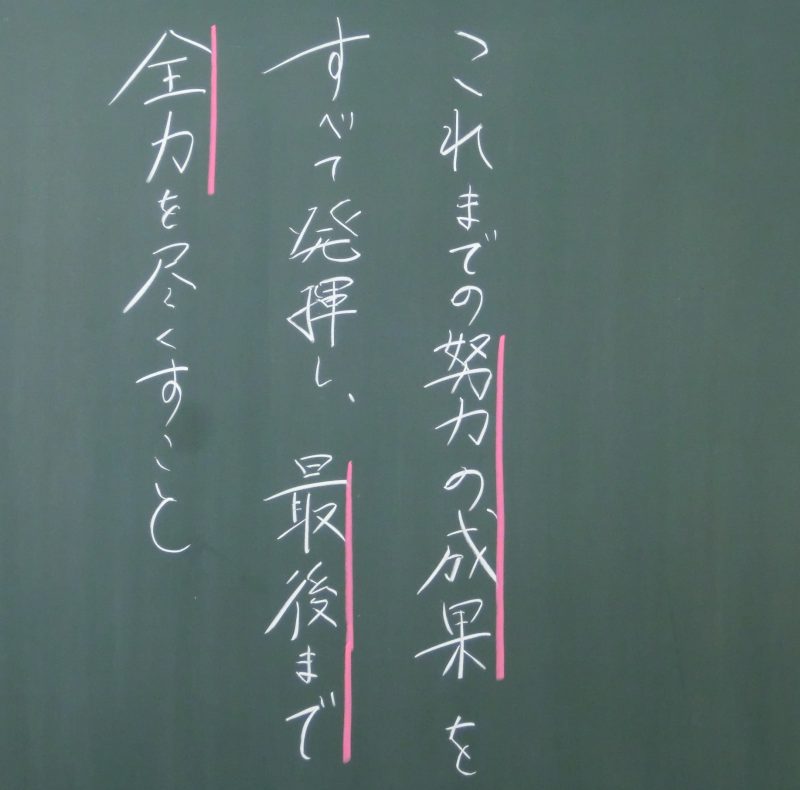 これまでの努力の成果を
すべて発揮し、最後まで
全力を尽くすこと